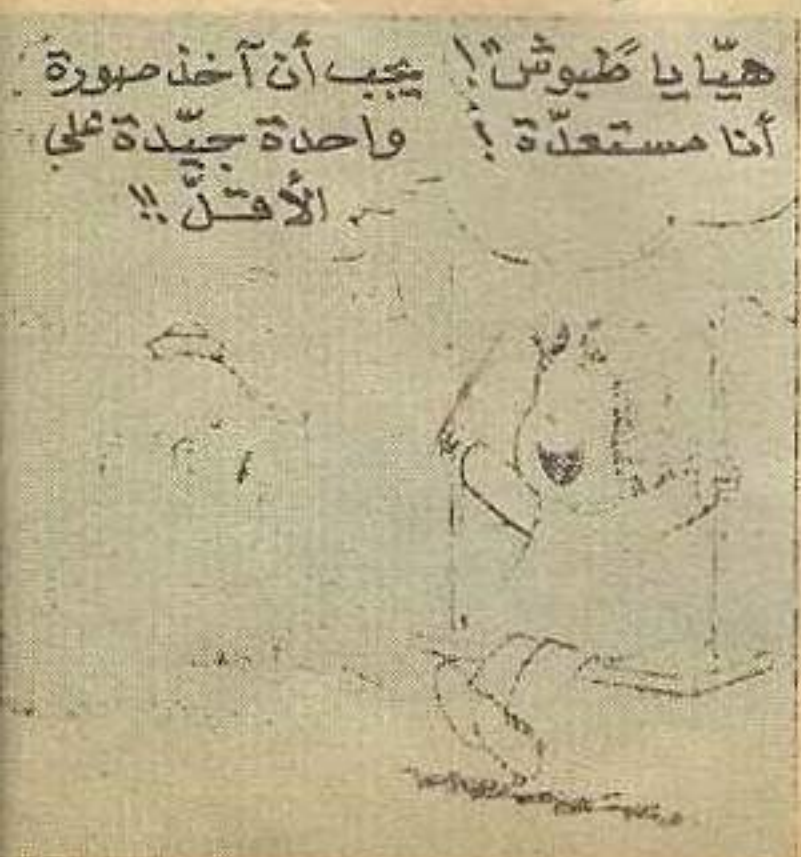 هيّا يا طبوش"!
أنا مستعدّة !
يجب أن آخذ صورة
واحدة جيّدة على
الأقلّ !!